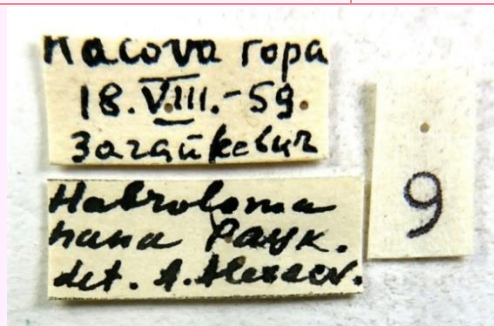 Касова гора
18.VIII.-59.
Загайкевич
Habroloma
nana Payk.
det. A. Alexeev.
9